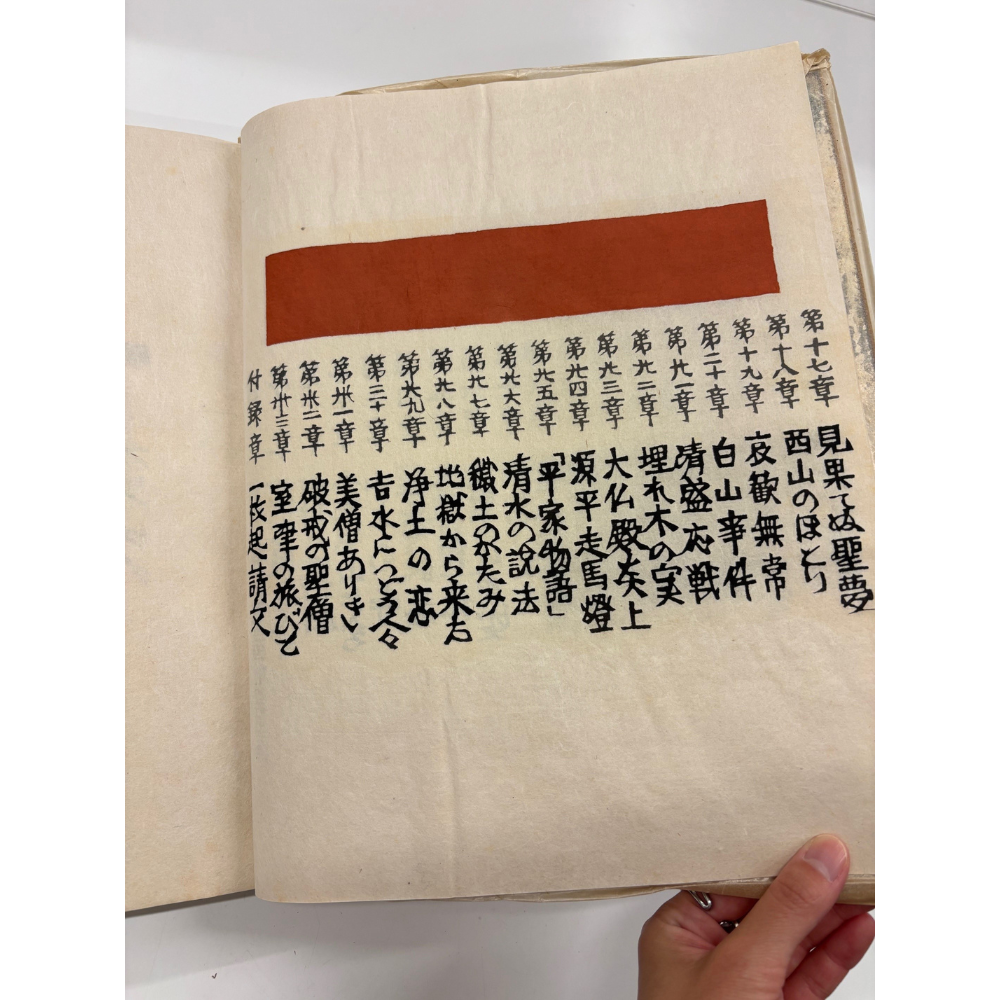 第十七章 見果てぬ聖夢
第十八章 西山のほとり
第十九章 哀歓無常
第二十章 白山事件
第廿一章 清盛応戦
第廿二章 埋れ木の実
第廿三章 大仏殿炎上
第廿四章 源平走馬燈
第廿五章 「平家物語」
第廿六章 清水の説法
第廿七章 土のかたみ
第廿八章 地獄から来た
第廿九章 浄土の恋
第三十章 吉水につどう人々
第卅一章 美僧ありき
第卅二章 破戒の聖僧
第卅三章 室津の旅びと
付録章 一枚起請文